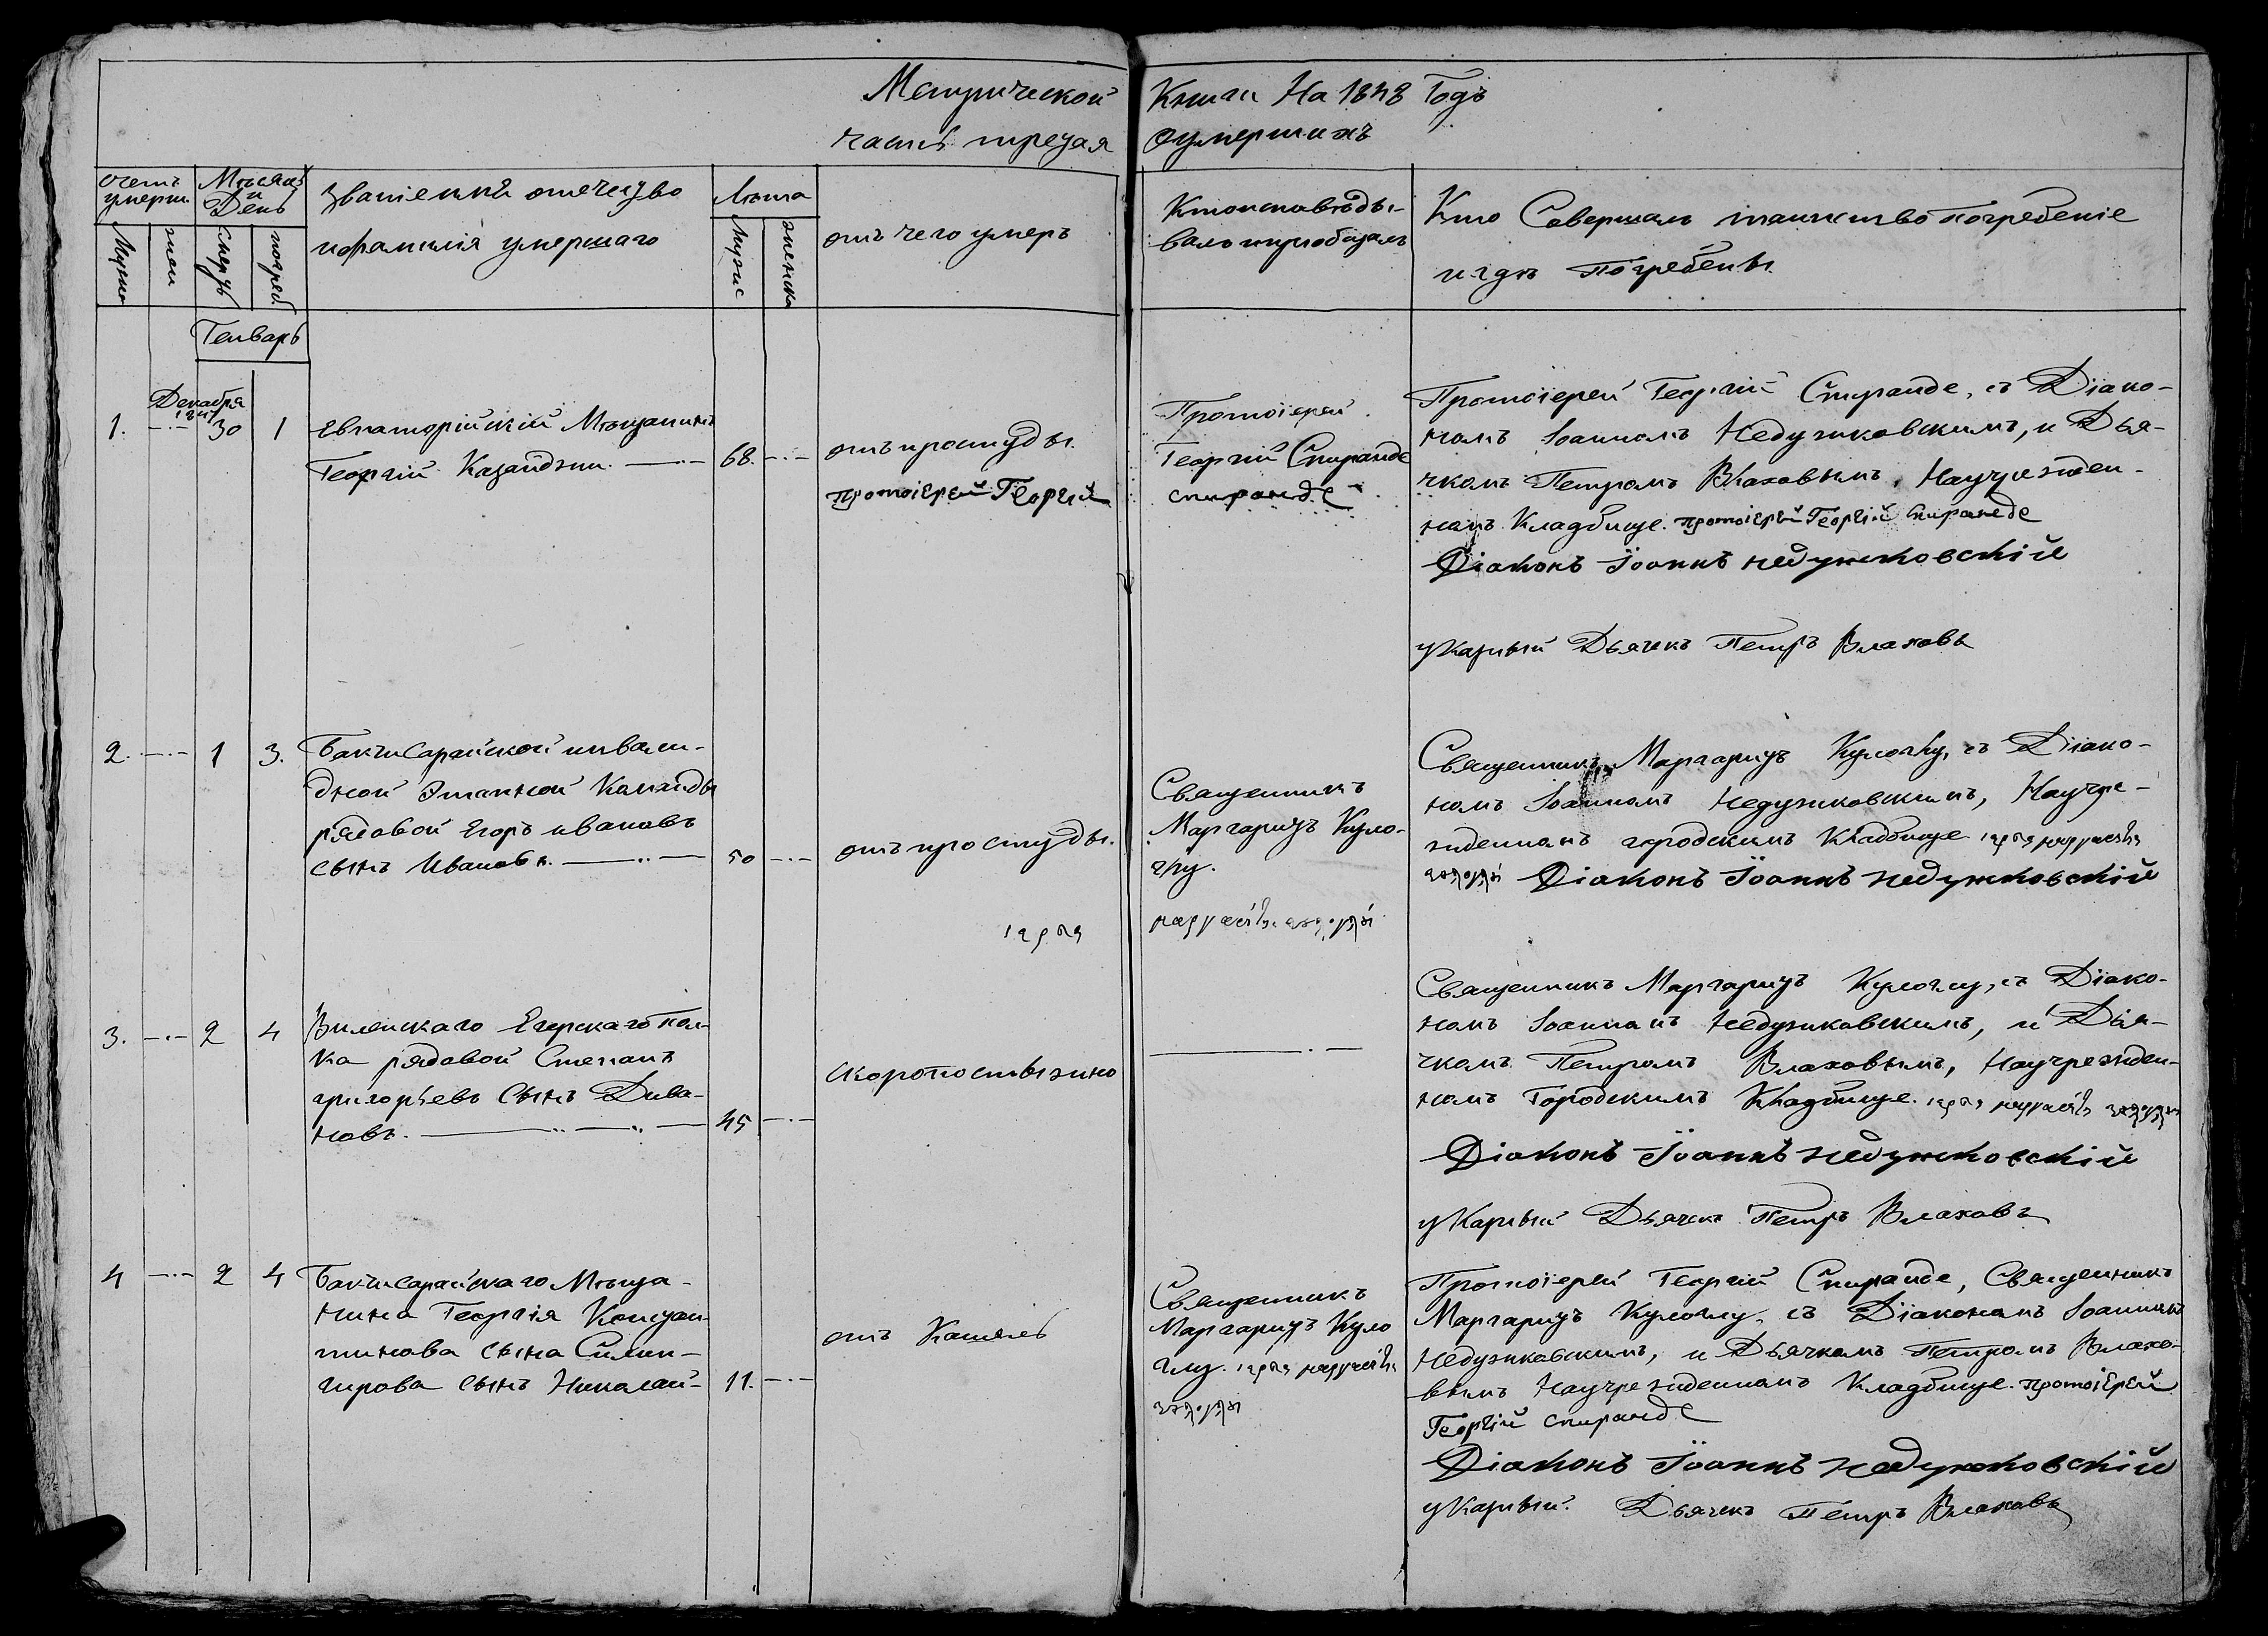 Метрической Книги На 1848 Годъ
часть третяя оумершихъ
счетъ умерш.
Мѣсяцъ и День
званіе имя отечество
и фамилія умершаго
Лѣта
отъ чего умеръ
Кто исповѣды-
валъ и приобщалъ
Кто Совершалъ таинство погребеніе
и гдѣ Погребены.
Мужес
жен
Смерть
погреб.
Мужес
женска
Генварь
Декабря
1847
1. 30 1
Евпаторійскій Мѣщанинъ
Георгій Казанджи. 68.
отъ простуды.
Протоіерей Георгій
Протоіерей
Георгій Спиранде
спиранде
Протоіерей Георгій Спиранде, съ Діако-
номъ Іоанномъ Недужковскимъ, и Дья-
чкомъ Петромъ Влаховымъ, Научрежден-
номъ Кладбище. протоіерей Георгій Спиранде
Діаконъ Іоаннъ недужковскій
укарный Дьячекъ Петръ Влаховъ
2. 1 3.
Бакчисарайской инвали-
дной Этапной Команды
рядовой Егоръ ивановъ
сынъ Ивановъ. 50
отъ простуды.
Священникъ
Маргаритъ Куло-
глу.
Священникъ Маргаритъ Кулоглу, съ Діако-
номъ Іоанномъ Недужковскимъ, Научре-
жденномъ городскимъ Кладбище
Діаконъ Іоаннъ недужковскій
3. 2 4
Виленскаго Егерскаго Пол-
ка рядовой Степанъ
григорьевъ Сынъ Дива-
новъ. 45
скоропостыжно
Священникъ Маргаритъ Кулоглу, съ Діако-
номъ Іоанномъ Недужковскимъ, и Дья-
чкомъ Петромъ Влаховымъ, Научрежден-
номъ Городскимъ Кладбище.
Діаконъ Іоаннъ недужковскій
укарный Дьячекъ Петръ Влаховъ
4 2 4
Бакчисарайскаго Мѣща-
нина Георгія Констан-
тинова сына
сынъ Николай 11.
отъ Кашель
Священникъ
Маргаритъ Куло
глу.
Протоіерей Георгій Спиранде, Священникъ
Маргаритъ Кулоглу, съ Діакономъ Іоанномъ
Недужковскимъ, и Дьячкомъ Петромъ Влахо-
вымъ Научрежденномъ Кладбище. протоіерей
Георгій спиранде
Діаконъ Іоаннъ недужковскій
укарный. Дьячекъ Петръ Влаховъ